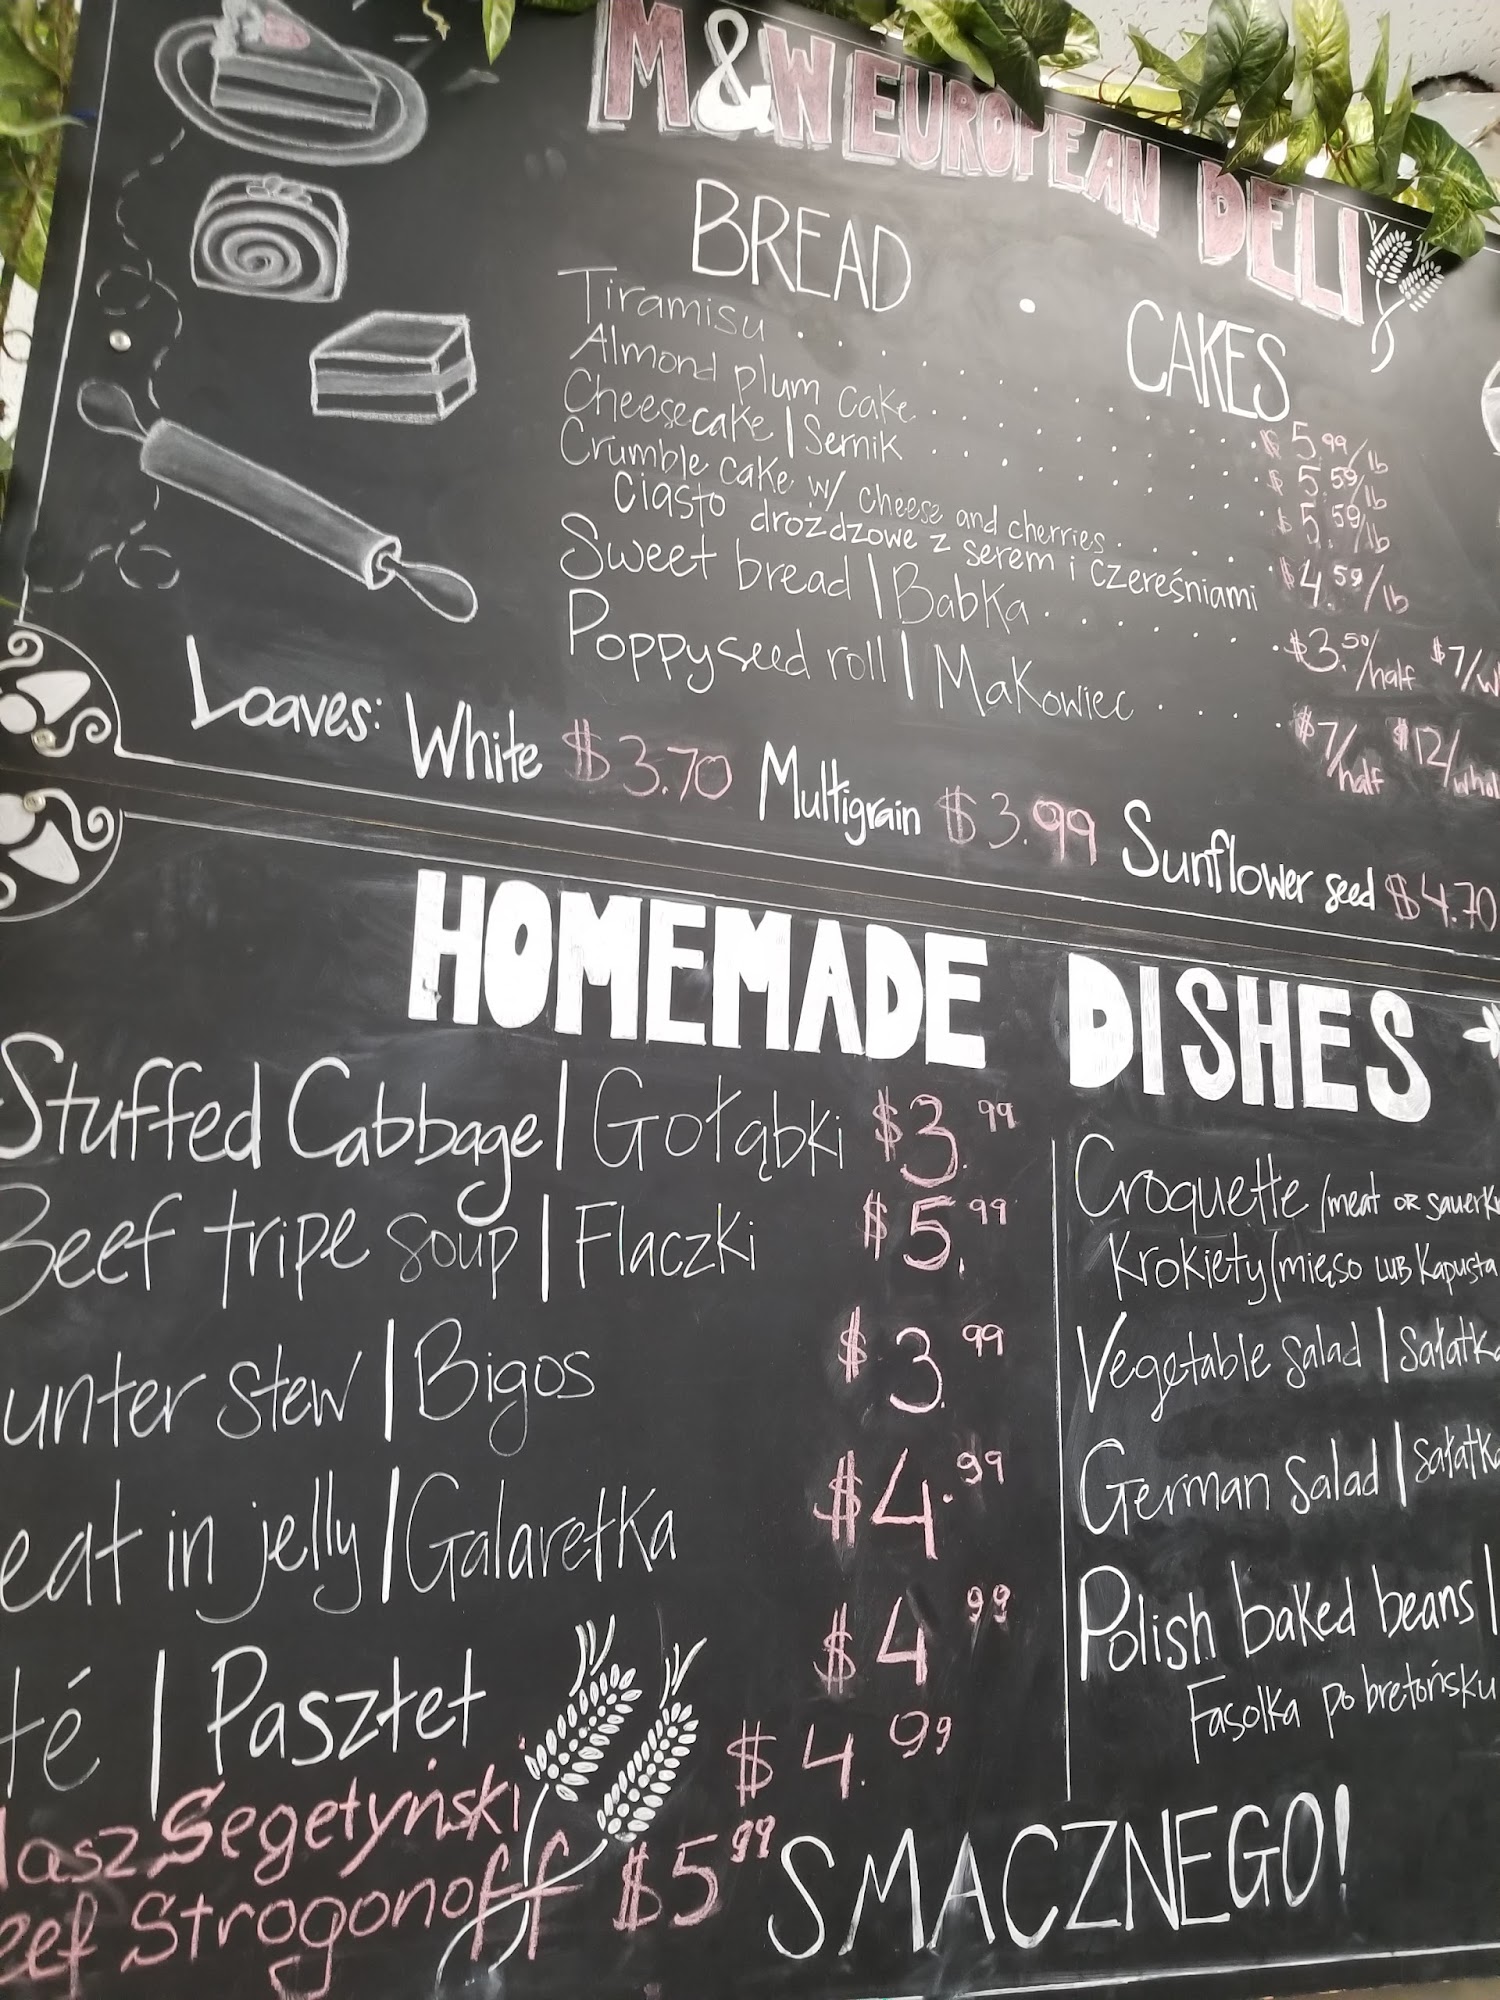 M&W EUROPEAN DELI
BREAD • CAKES
Tiramisu . . . . . . . . . . $5.99/lb
Almond plum cake . . . . . . . . $5.59/lb
Cheesecake | Sernik . . . . . . . . $5.59/lb
Crumble cake w/ cheese and cherries . . . . . $4.59/lb
Ciasto drożdzowe z serem i czereśniami
Sweet bread | Babka . . . . . . . $3.50/half $7/w
Poppyseed roll | Makowiec . . . . . $7/half $12/whol
Loaves: White $3.70 Multigrain $3.99 Sunflower seed $4.70
HOMEMADE DISHES
Stuffed Cabbage | Gołąbki $3.99
Beef tripe soup | Flaczki $5.99
unter stew | Bigos $3.99
eat in jelly | Galaretka $4.99
té | Pasztet $4.99
$4.99
asz Segetyński
eef Strogonoff $5.99
Croquette /meat OR sauerk
Krokiety/mięso LUB kapusta
Vegetable salad | Sałatk
German Salad | Sałatk
Polish baked beans |
Fasolka po bretońsku
SMACZNEGO!